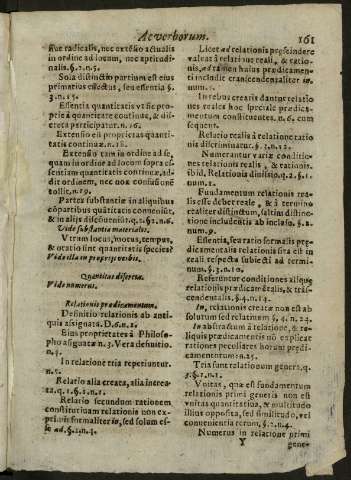 Ac verborum. 161
siue radicalis, nec extēsio actualis
in ordine ad locum, nec aptitudi-
nalis. §. 2. n. 5.
Sola distinctio partium est eius
primarius effectus, seu essentia §.
3. n. 15.
Essentia quantitatis vt sic pro-
prie à quantitate continue, & dis-
creta participatur. n. 16.
Extensio est proprietas quanti-
tatis continuæ. n. 18.
Extensio tam in ordine ad se,
quam in ordine ad locum supra es-
sentiam quantitatis continuæ, ad-
dit ordinem, nec nou
tollit. n. 19.
Partes substantiæ in aliquibus
cōpartibus quātitatis conueniūt,
& in alijs disconueniūt. q. 1. §. 2. n. 6.
Vide substantia materialis.
Vtrum locus, motus, tempus,
& oratio sint quantitatis species?
Vide illa in proprijs verbis.
Quantitas discreta.
Vide numerus.
Relationis prædicamentum.
Definitio relationis ab anti-
quis assignata. D. 6. n. 2.
Eius proprietates à Philoso-
pho assignatæ n. 3. Vera definitio.
n. 4.
In relatione tria reperiuntur.
n. 5.
Relatio alia creata, alia increa-
ta. q. 1. §. 1. n. 1.
Relatio secundum rationem
constitutiuam relationis non ex-
primit formaliter in, sed solum es-
se ad. §. 2. n. 4.
Licet ad relationis præscindere
valeat à relatione reali, & ratio-
nis, ad tamen huius prædicamen-
ti includit transcendentaliter in.
num. 5.
In rebus crearis dantur relatio
nes reales hoc speciale prædica-
mentum constituentes. n. 6. cum
sequent.
Relatio realis à relatione ratio
nis discriminatur. §. 2. n. 12.
Numerantur variæ conditio-
nes relationis realis, & rationis.
ibid. Relationis diuisio. q. 2. §. 1.
num. 1.
Fundamentum relationis rea-
lis esse debet reale, & à termino
realiter distinctum, saltim distinc-
tione includentis ab incluso. §. 2.
num. 9.
Essentia, seu ratio formalis præ-
dicamentalis relationis sita est in
reali respectu subiecti ad termi-
num. §. 3. n. 10.
Referuntur conditiones aliquæ
relationis prædicamētalis, & trās-
cendentalis. §. 4. n. 14.
In, relationis creatæ non est ab
solutum sed relatiuum §. 4. n. 24.
In abstractum à relatione, & re-
liquis prædicamentis nō explicat
rationes peculiares horum prædi-
camentorum: n. 25.
Tria sunt relationum genera. q.
3. §. 1. n. 1.
Vnitas, quæ est fundamentum
relationis primi generis non est
vnitas quantitatiua, & multitudo
illius opposita, sed similitudo, vel
conuenientia rerum, §. 2. n. 4.
Numerus in relatione primi
Y gene-